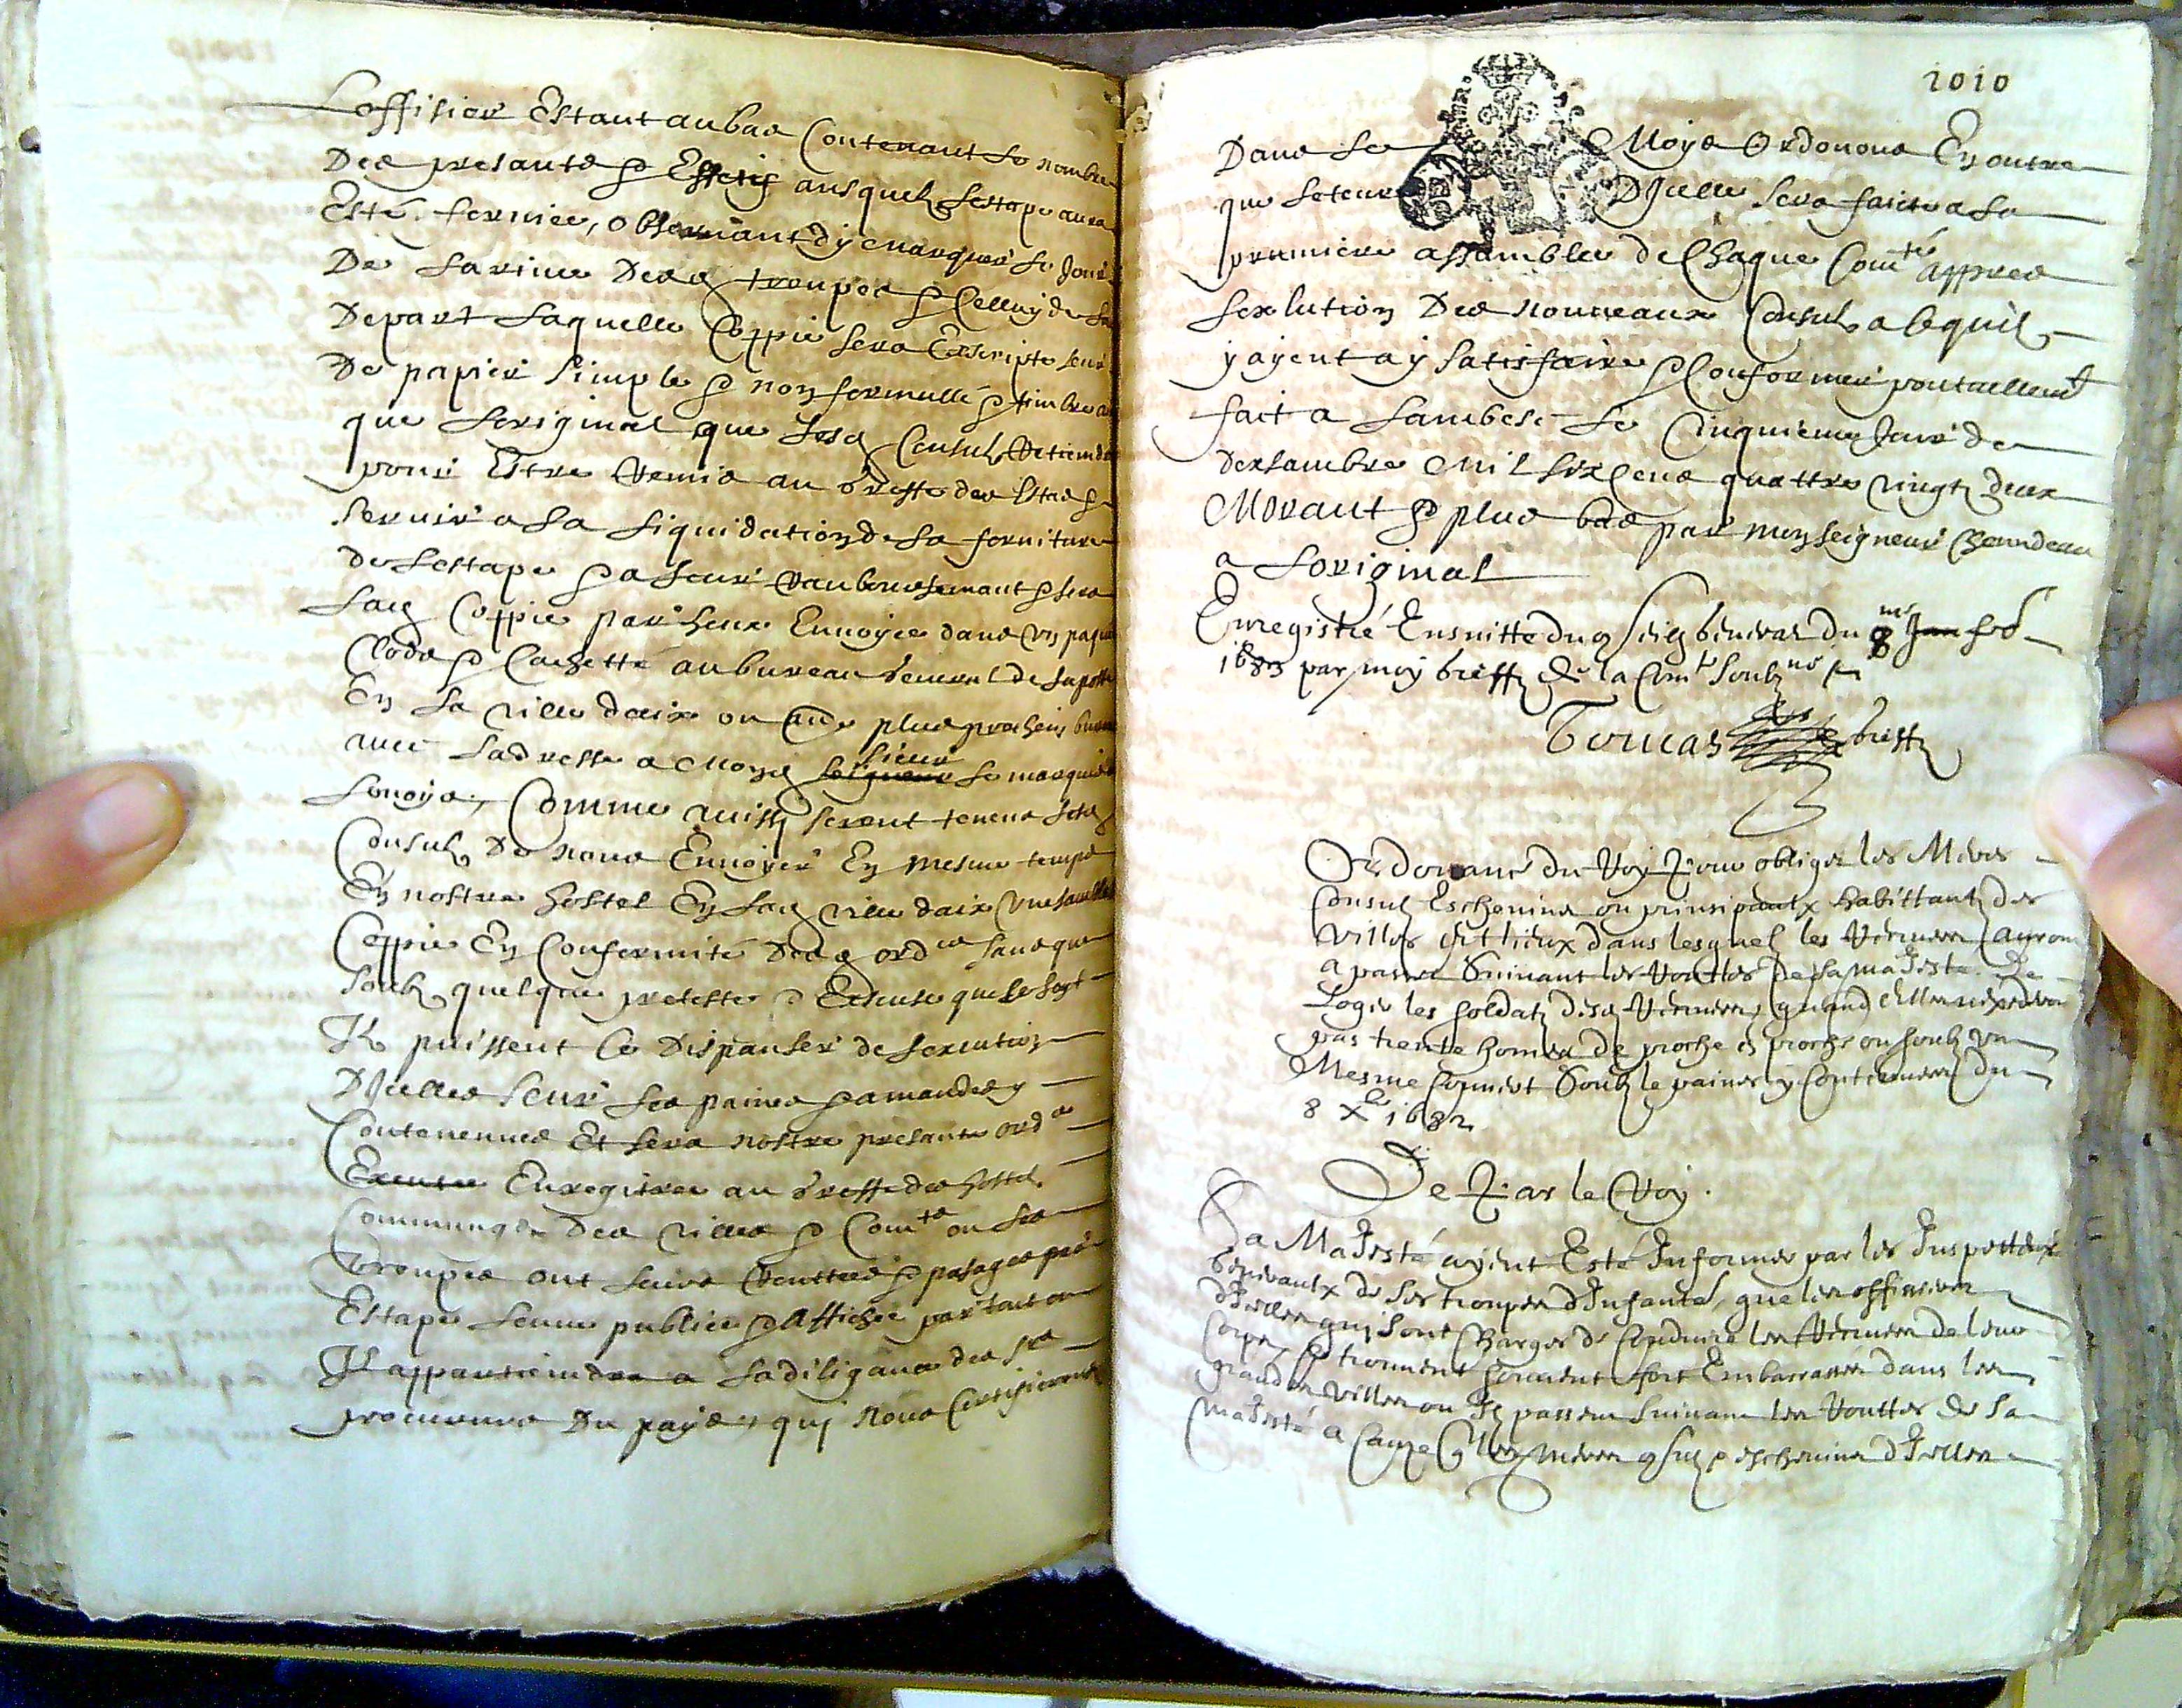 Loffisier Estant aubas Contenant le nombre
Des presants & Effectif ausquels Lestape aura
Esté fornie, observant dy marquer le Jour
De Larivee Desd troupes & Celluy de La
Depart Laquelle Coppie sera Escripte seur
De papier simple & non formullé & timbre
que Loriginal que Lesd Consulz Retiendr
pour Estre Remis au Greffe des Estas &
servir a La Liquidation de La forniture
de Lestape & a Leur Ranboursemant & sera
Lad Coppie par heux Envoyée dans un paque
Clods & Cachetté au bureau General de La poste
En La ville daix ou au plus prochein bureau
avec Ladresse a Mons sieur Le marquis
Louvoys, Comme aussy seront tenus Lesd
Consulz De nous Envoyer En mesme temps
En nostre hostel En Lad ville daix une samblable
Coppie En Conformité Desd ord.ces sans que
soubz quelque pretexte & Excuse que se soyt
Ils puissent se Dispanser de Lexecution
DJcelles seur Les paines & amandes y
Contenennes Et sera nostre presante ord.ce
Enregitree au Greffe des hostel
Communs Des villes & Com.tes ou Les
troupes ont Leurs Routtes & pasages pour
Estape Leue publiee & Affichée par tout ou
Il appartiendra a La diligance des s.rs
procureurs Du pays, qui nous Certifieront
1010
Dans Le Moys Ordonons En outre
que Leteur DJcelle sera faicte a La
premiere assamblee de Chaque Com.té appres
Lexlution Des nouveaux Consulz a Ce quil
y ayent a y satisfaire & Conformer pontuellem.t
fait a Lambesc Le Cinquieme Jour de
dexsambre Mil six Cens quattre vingtz deux
Morant & plus bas par monseigneur
a Loriginal
Enregistré Ensuitte dud General du 8
1683 par moy Greff de la Com.té Soubz.né
Greff
Ordonance du Roy pour obliger les Mères
Consulz Eschevins ou prinsipaulx habittantz des
villes et lieux dans lesquelz les Recrues auront
a passer Suivant les Routtes de sa majesté de
Loger les soldatz desd Recrues quand elles nexedron
pas trente homes de proche en proche ou soubz un
Mesme Couvert Soubz le paines y Contenues Du
8 X.e 1682
De Par le Roy.
Sa Majesté ayent Esté Informée par les Inspetteurs
Generaulx de ses troupes dInfanté, que les offisiers
dIcelles qui sont Charges de Conduire les Recrues de leur
Corps, se trouvent souvent fort Embarrasses dans les
grandes villes ou Ils passent suivant les Routtes de sa
majesté a Cause que les maires & eschevins dIcelles